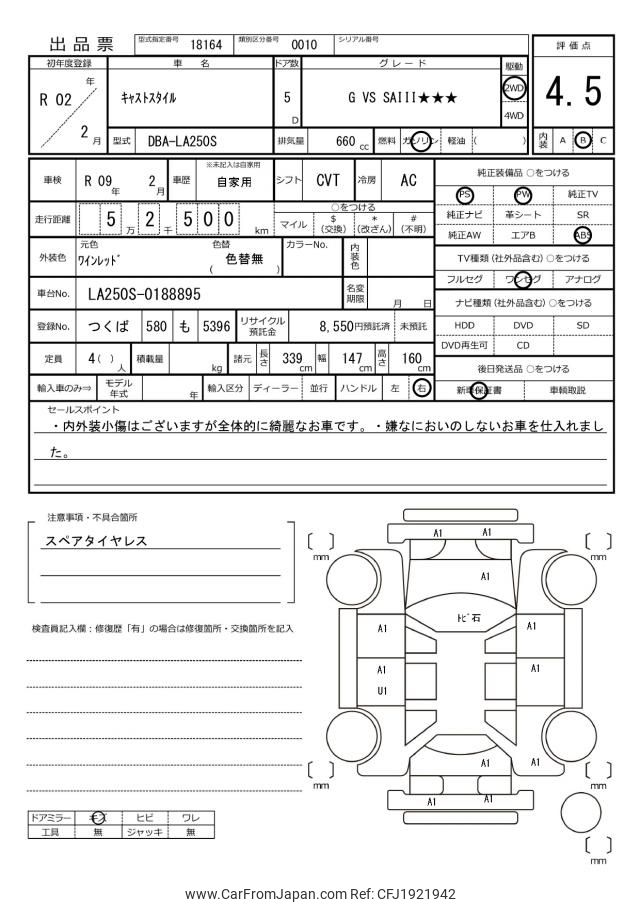 出品票 型式指定番号 18164 類別区分番号 0010 シリアル番号
初年度登録 車 名 ドア数 グレード 駆動 評価点
R 02 年 2 月 ｷｬｽﾄｽﾀｲﾙ 5 D G VS SAIII★★★ 2WD 4WD 4.5
型式 DBA-LA250S 排気量 660 cc 燃料 ガソリン 軽油 ( ) 内装 A B C
車検 R 09 年 2 月 車歴 ※未記入は自家用 自家用 シフト CVT 冷房 AC
走行距離 5 万 2 千 5 0 0 km ○をつける
マイル $ (交換) * (改ざん) # (不明)
外装色 元色 ﾜｲﾝﾚｯﾄﾞ 色替 ( 色替無 ) カラーNo. 内装色
車台No. LA250S-0188895 名変期限 月 日
登録No. つくば 580 も 5396 リサイクル預託金 8,550円預託済 未預託
定員 4( ) 人 積載量 kg 諸元 長さ 339 cm 幅 147 cm 高さ 160 cm
輸入車のみ⇒ モデル年式 年 輸入区分 ディーラー 並行 ハンドル 左 右
純正装備品 ○をつける
PS PW 純正TV
純正ナビ 革シート SR
純正AW エアB ABS
TV種類 (社外品含む) ○をつける
フルセグ ワンセグ アナログ
ナビ種類 (社外品含む) ○をつける
HDD DVD SD
DVD再生可 CD
後日発送品 ○をつける
新車保証書 車輌取説
セールスポイント
・内外装小傷はございますが全体的に綺麗なお車です。・嫌なにおいのしないお車を仕入れまし
た。
注意事項・不具合箇所
スペアタイヤレス
検査員記入欄：修復歴「有」の場合は修復箇所・交換箇所を記入
ドアミラー キズ ヒビ ワレ
工具 無 ジャッキ 無
A1 A1
mm mm
A1
ﾄﾋﾞ石
A1 A1
A1 A1
U1
A1 A1
mm mm
A1 A1
mm
www.CarFromJapan.com Ref: CFJ1921942